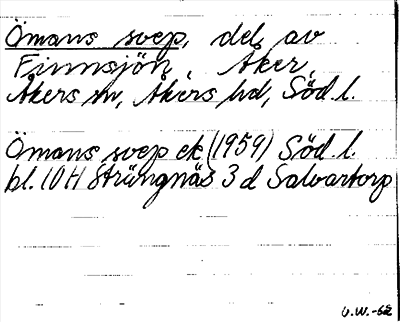 Ömans svep, del av
Finnsjön, Åker,
Åkers sn, Åkers hd, Söd. l.
Ömans svep ek (1959) Söd. l.
bl. 10H Strängnäs 3 d Salvartorp
G.W.-62